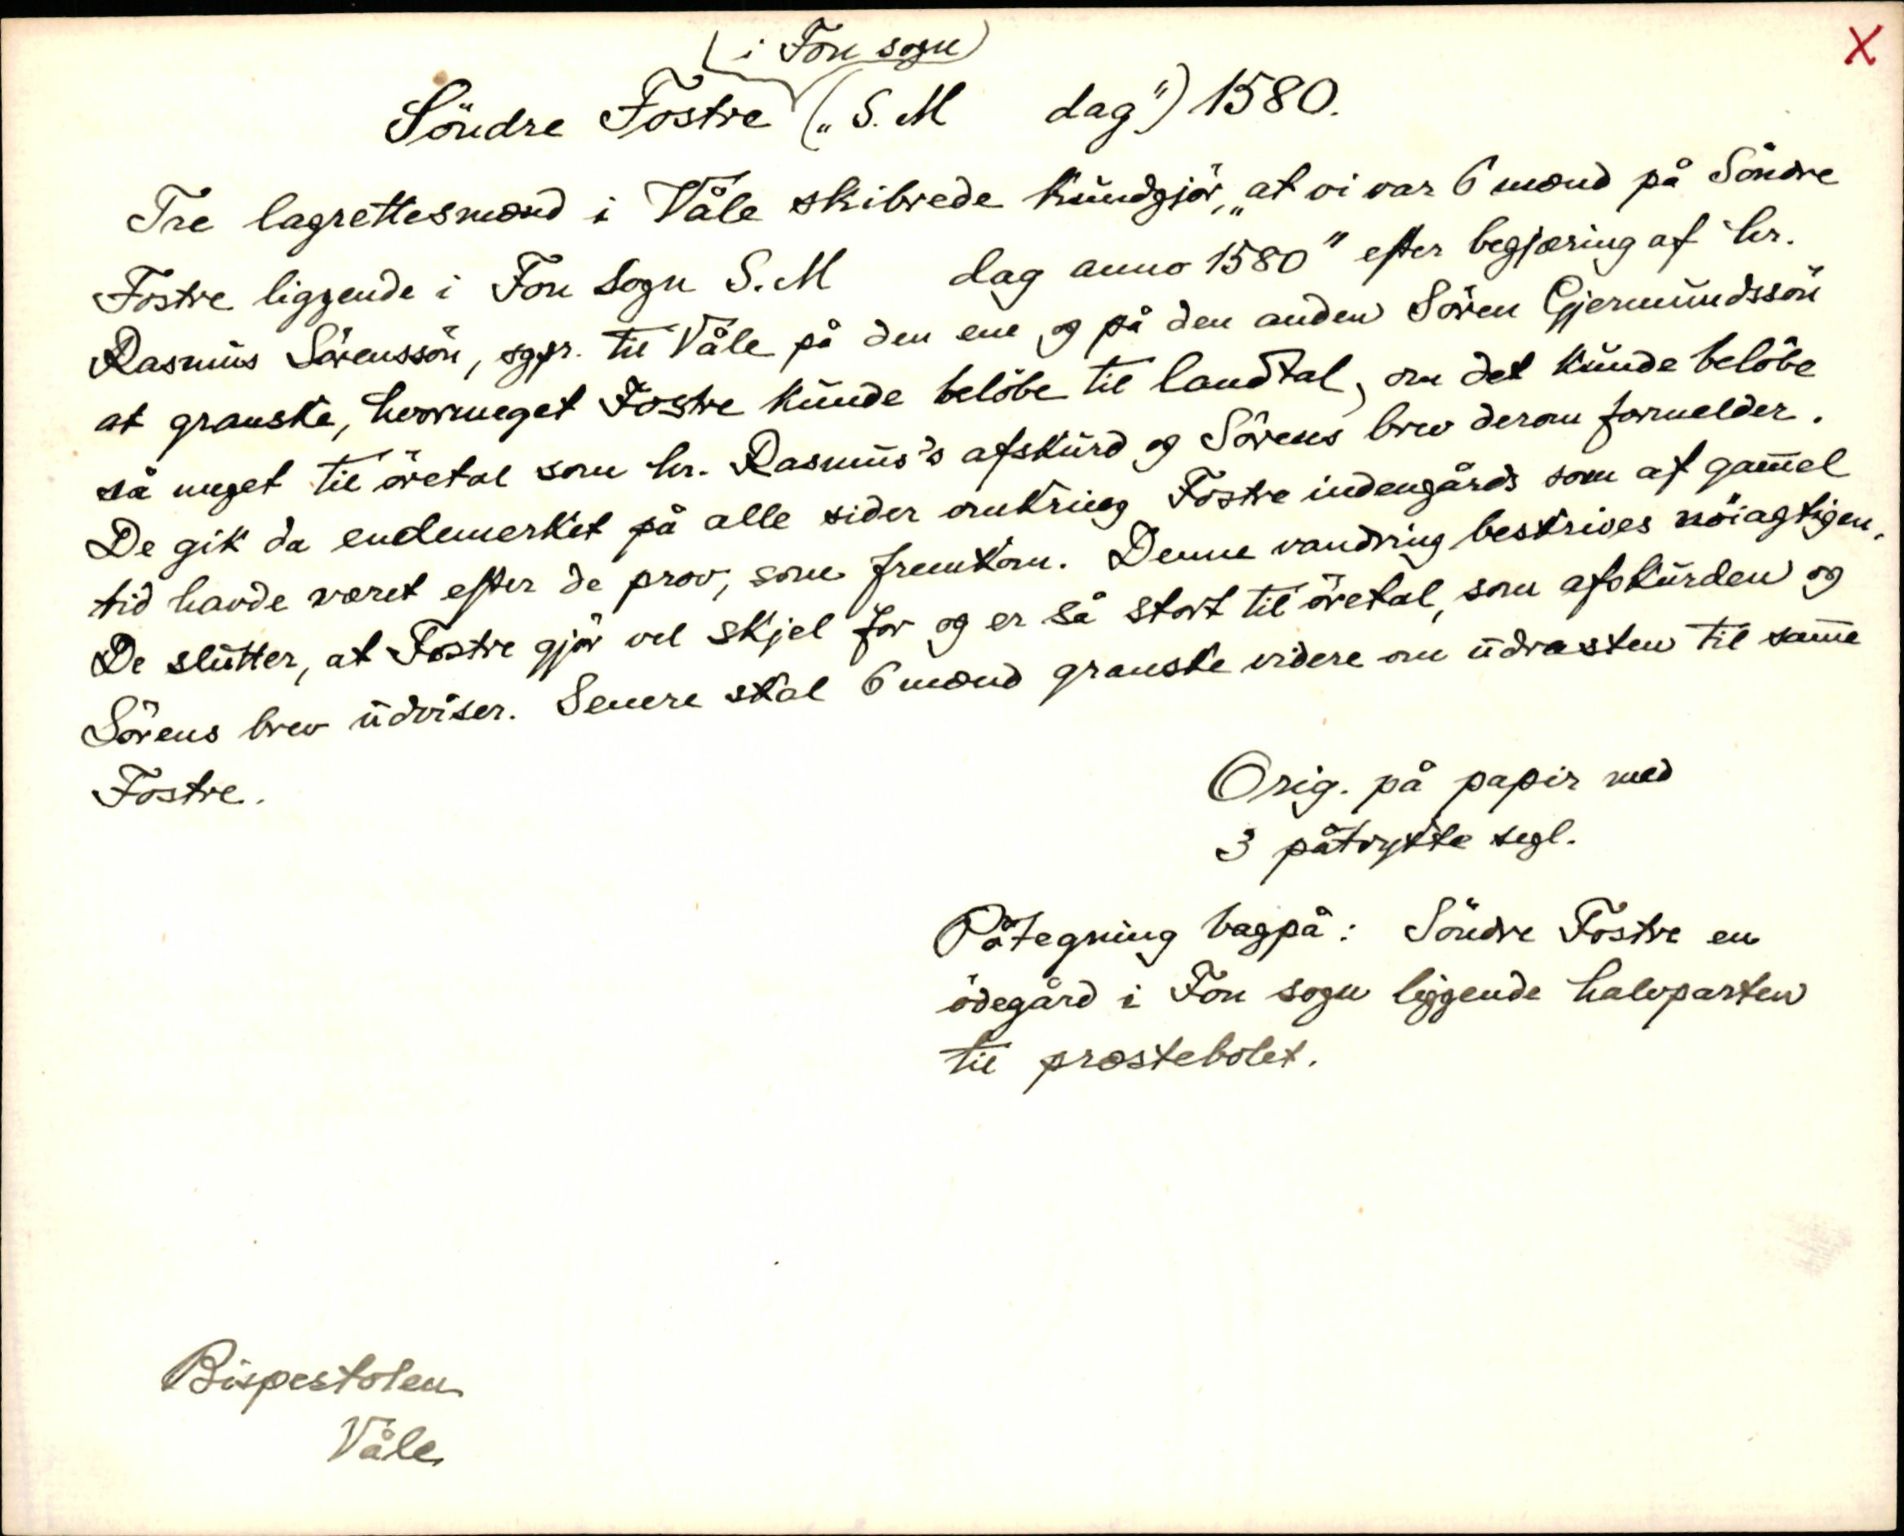 X
(i Fon sogn)
Söndre Fostre („S. M dag") 1580.
Tre lagrettesmænd i Våle skibrede kundgjör, „at vi var 6 mænd på Söndre
Fostre liggende i Fon Sogn S. M dag anno 1580" efter begjæring af hr.
Rasmus Sörenssön, sgpr. til Våle på den ene og på den anden Sören Gjermundssön
at granske, hvormeget Fostre kunde belöbe til landtal, om det kunde belöbe
så meget til öretal som hr. Rasmus's afskurd og Sörens brev derom formelder.
De gik da endemerket på alle sider omkring Fostre indengårds som af gam̄el
tid havde været efter de prov, som fremkom. Denne vandring beskrives nöiagtigen.
De slutter, at Fostre gjör vel skjel for og er så stort til öretal, som afskurden og
Sörens brev udviser. Senere skal 6 mænd granske videre om udrasten til sam̄e
Fostre.
Orig. på papir med
3 påtrykte segl.
Påtegning bagpå: Söndre Fostre en
ödegård i Fon sogn liggende halvparten
til præstebolet.
Bispestolen
Våle